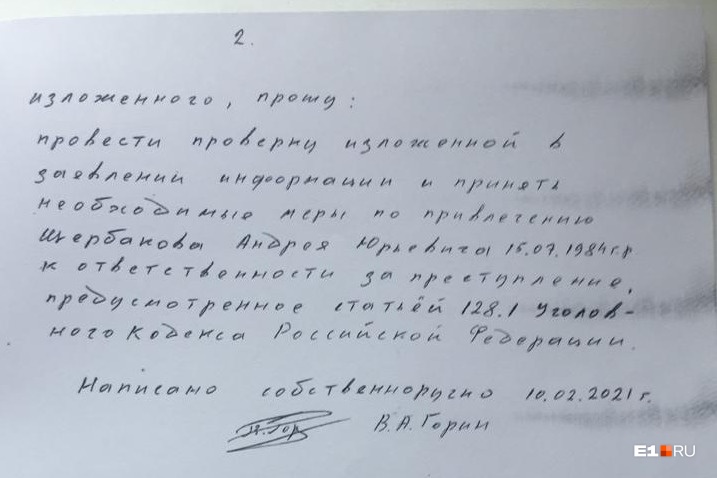 2.
изложенного, прошу:
провести проверку изложенной в
заявлении информации и принять
необходимые меры по привлечению
Щербакова Андрея Юрьевича 15.07.1984г.р
к ответственности за преступление,
предусмотренное статьёй 128.1 Уголов-
ного Кодекса Российской Федерации.
Написано собственноручно 10.02.2021г.
В.А.Горин
E1.RU